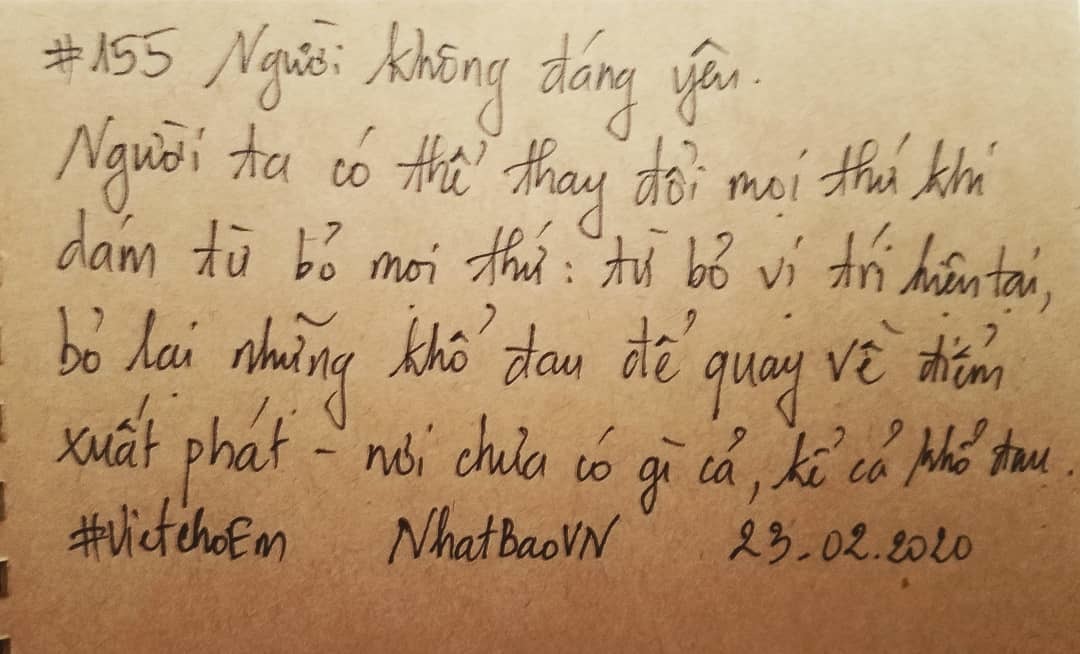 #155 Người không đáng yêu.
Người ta có thể thay đổi mọi thứ khi
dám từ bỏ mọi thứ: từ bỏ vị trí hiện tại,
bỏ lại những khổ đau để quay về điểm
xuất phát - nơi chưa có gì cả, kể cả khổ đau.
#VietchoEm NhatBaoVN 23-02.2020